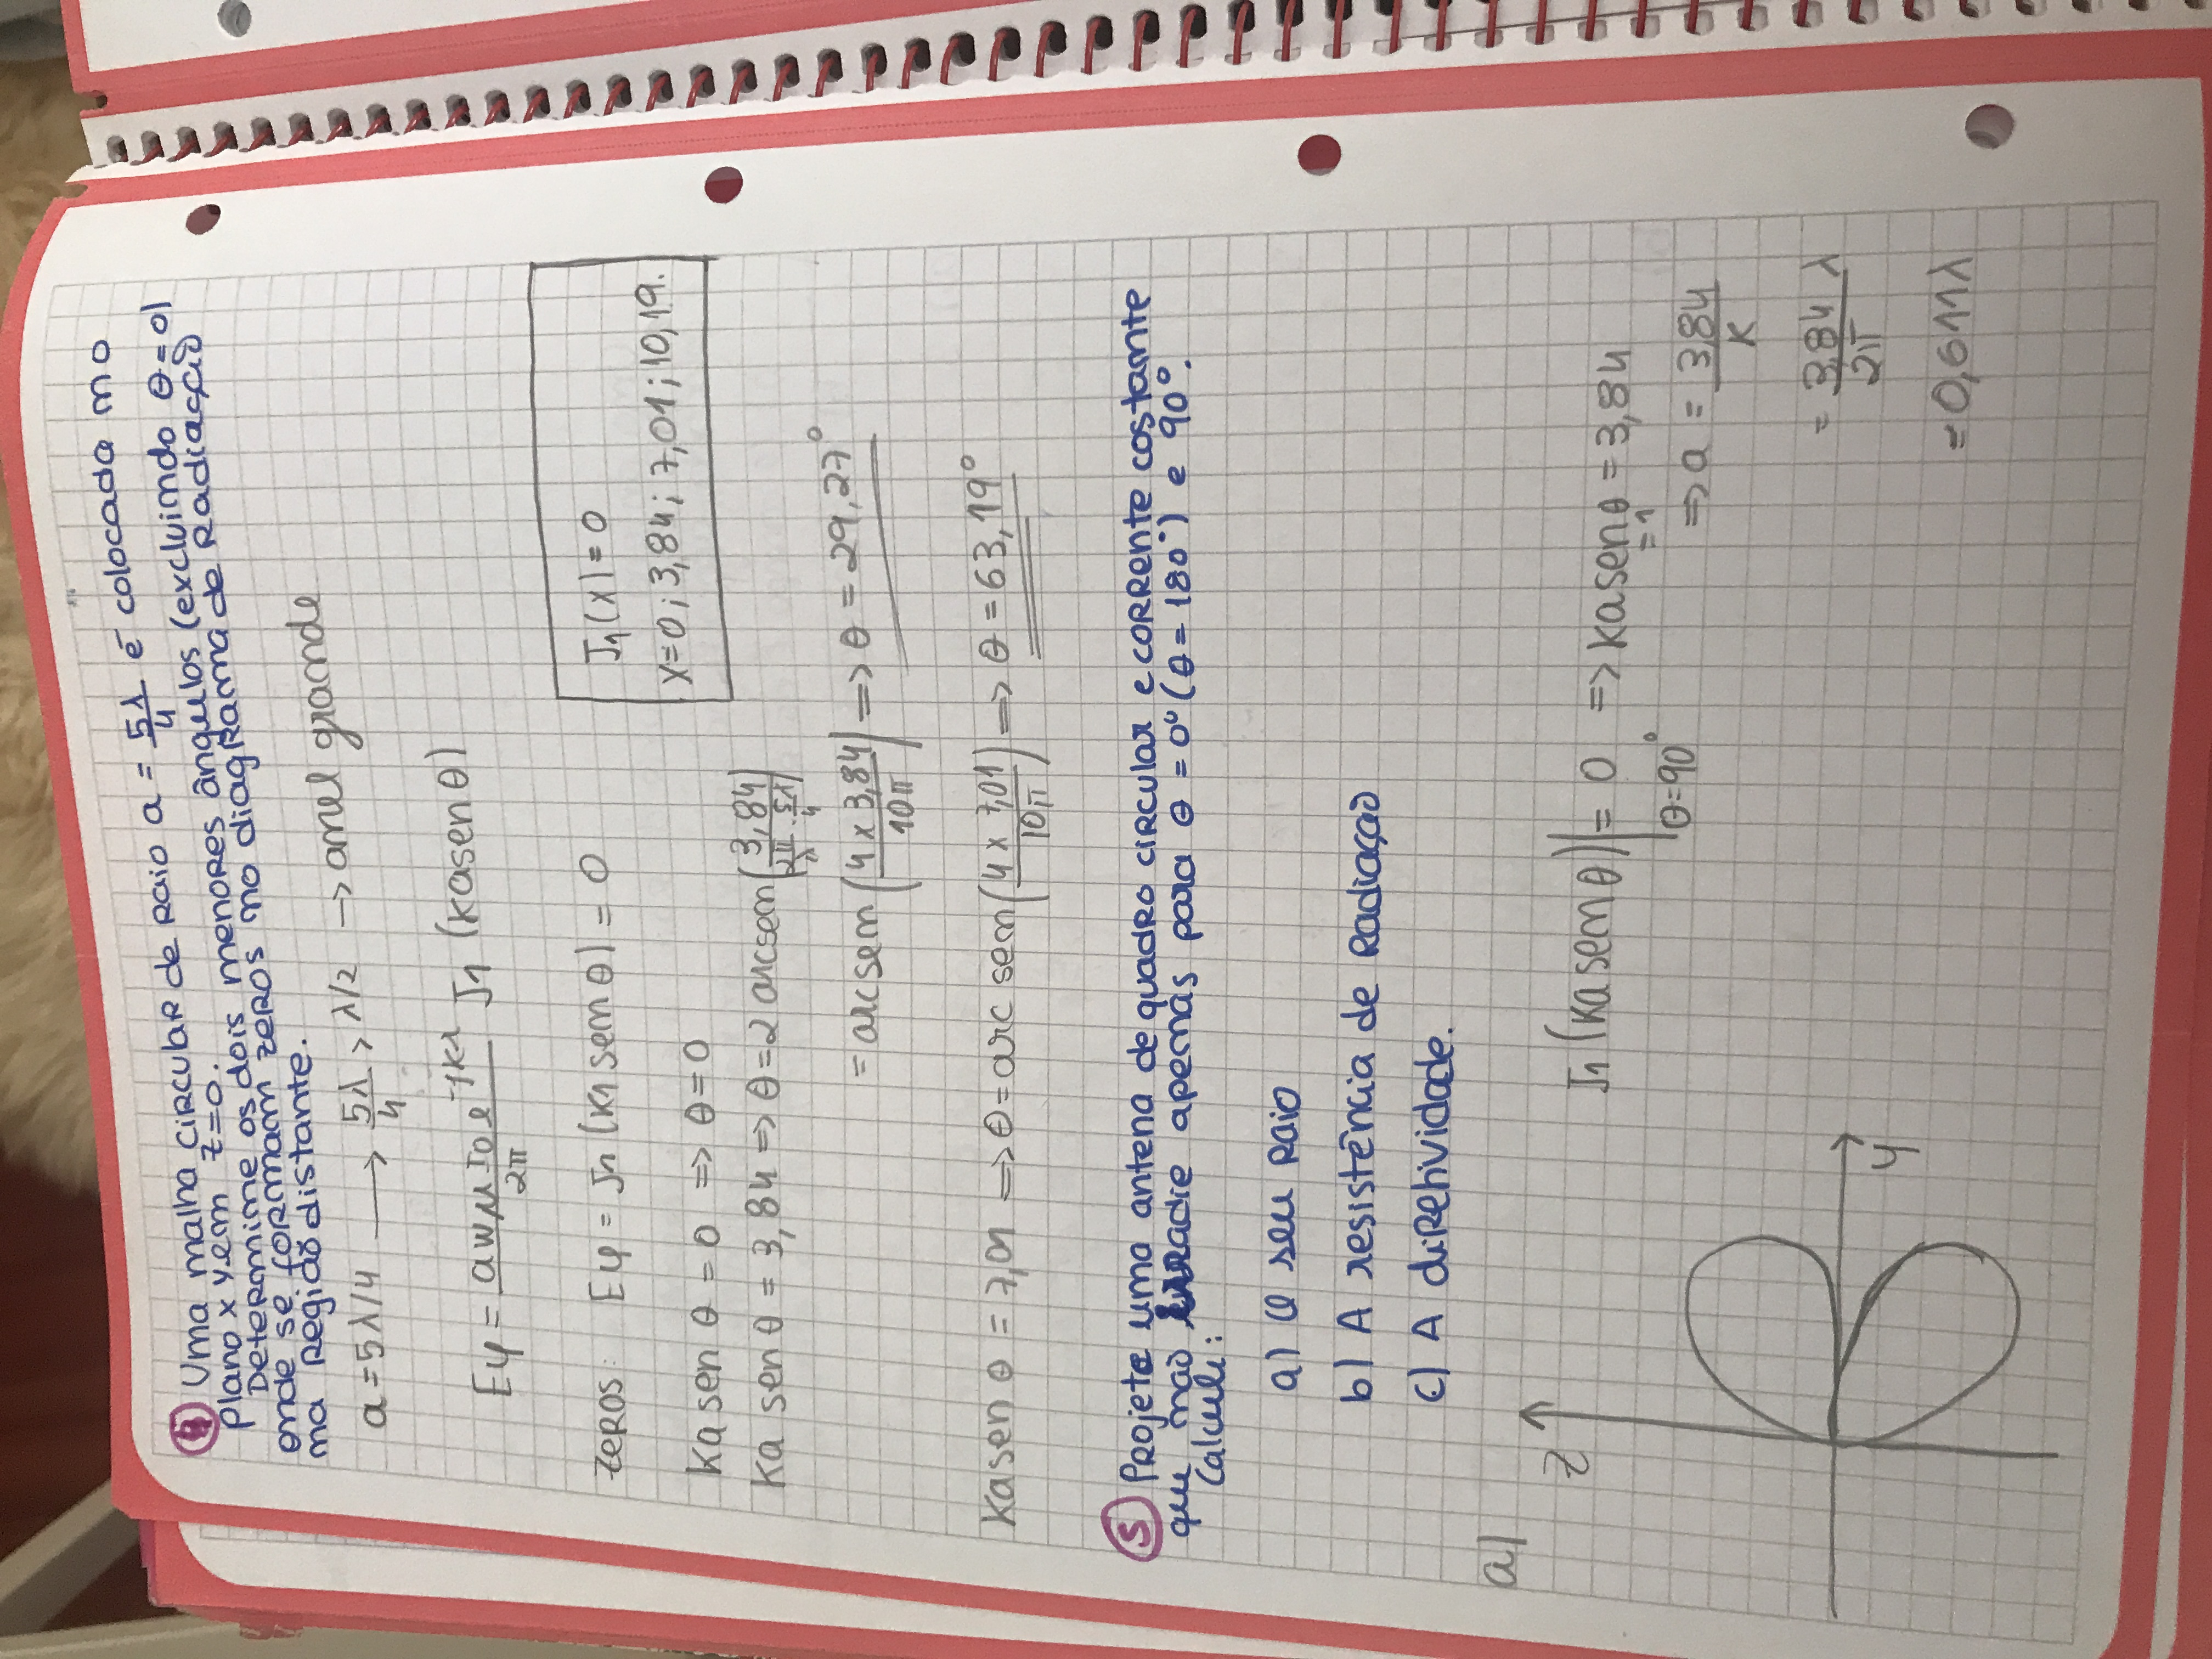 ④ Uma malha circular de raio a = 5λ/4 é colocada no
plano x y em z=0.
Determine os dois menores ângulos (excluindo θ=0)
onde se formam zeros no diagrama de radiacção
na região distante.
a = 5λ/4 → 5λ/4 > λ/2 → anel grande
Eφ = a w μ I0 e^-jkr / 2π J1 (ka sen θ)
zeros: Eφ = J1 (k1 sem θ) = 0
J1(x) = 0
x=0; 3,84; 7,01; 10,19.
ka sen θ = 0 => θ=0
ka sen θ = 3,84 => θ=2 arcsem (3,84 / (2π/λ . 5λ/4))
= arcsem (4 x 3,84 / 10π) => θ = 29,27°
ka sen θ = 7,01 => θ = arc sem (4 x 7,01 / 10π) => θ = 63,19°
⑤ Projete uma antena de quadro circular e corrente costante
que não irradie apenas para θ = 0° (θ = 180°) e 90°.
Calcule:
a) O seu raio
b) A resistência de radiação
c) A diretividade.
a)
z
y
J1 (ka sem θ)| = 0 => ka sen θ = 3,84
θ=90°
=1
=> a = 3,84 / k
= 3,84 λ / 2π
= 0,611λ